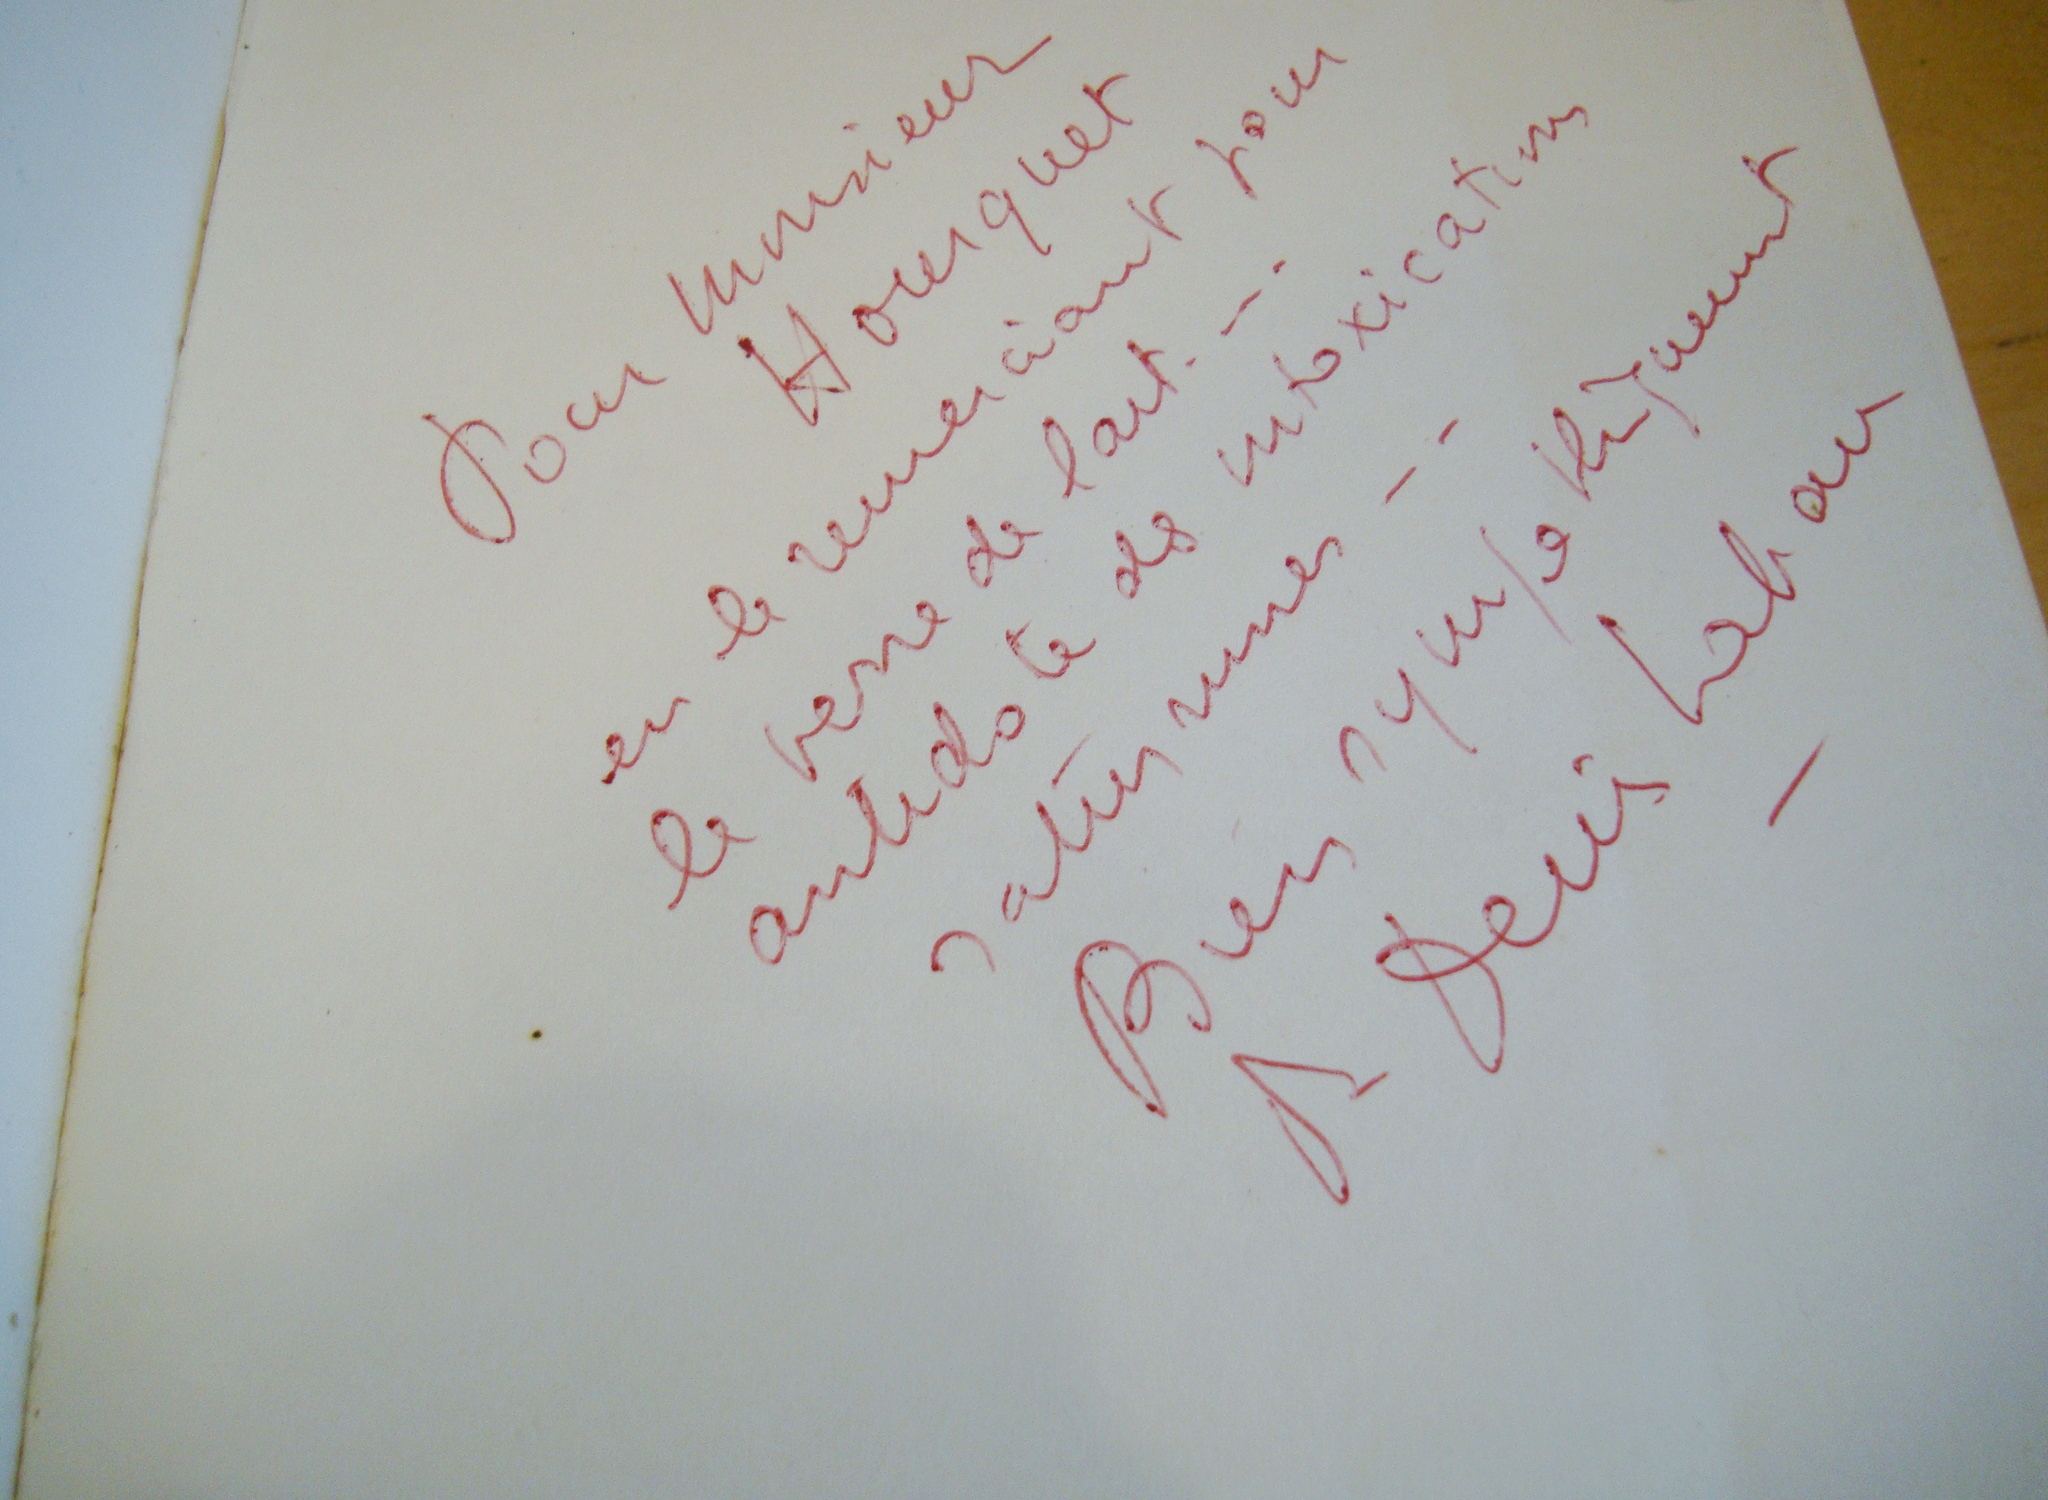 Pour monsieur
Hourquet
en le remerciant pour
le verre de lait. - -
antidote des intoxications
saturnines - -
Bien sympathiquement
Denis